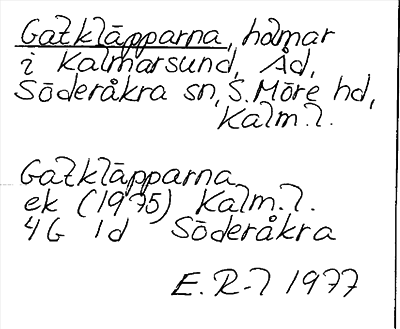 Gatkläpparna, holmar
i Kalmarsund, Åd,
Söderåkra sn, S. Möre hd,
Kalm. l.
Gatkläpparna
ek (1975) Kalm. l.
4G 1d Söderåkra
E. R-l 1977